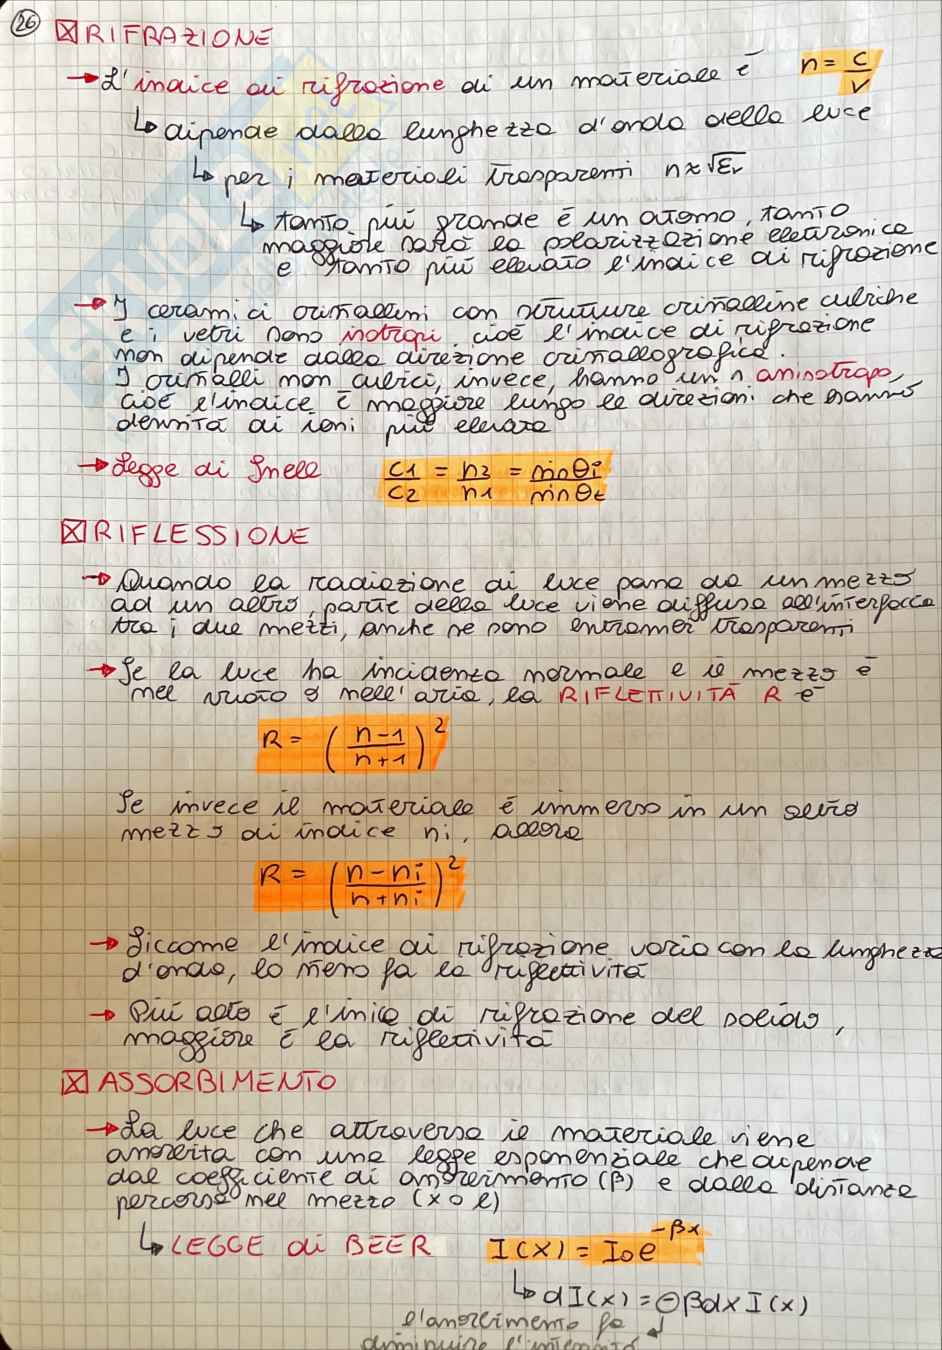 26
RIFRAZIONE
→ L'indice di rifrazione di un materiale è n = c/v
↳ dipende dalla lunghezza d'onda della luce
↳ per i materiali trasparenti n ≈ √εr
↳ tanto più grande è un atomo, tanto
maggiore sarà la polarizzazione elettronica
e tanto più elevato l'indice di rifrazione
→ I ceramici cristallini con strutture cristalline cubiche
e i vetri sono isotropi, cioè l'indice di rifrazione
non dipende dalla direzione cristallografica.
I cristalli non cubici, invece, hanno un n anisotropo,
cioè l'indice è maggiore lungo le direzioni che hanno
densità di ioni più elevata
→ Legge di Snell c1/c2 = n2/n1 = sinθi/sinθt
RIFLESSIONE
→ Quando la radiazione di luce passa da un mezzo
ad un altro, parte della luce viene diffusa all'interfaccia
tra i due mezzi, anche se sono entrambi trasparenti
→ Se la luce ha incidenza normale e il mezzo è
nel vuoto o nell'aria, la RIFLETTIVITÀ R è
R = ( n-1 / n+1 )²
Se invece il materiale è immerso in un altro
mezzo di indice ni, allora
R = ( n-ni / n+ni )²
→ Siccome l'indice di rifrazione varia con la lunghezza
d'onda, lo stesso fa la riflettività
→ Più alto è l'inice di rifrazione del solido,
maggiore è la riflettività
ASSORBIMENTO
→ La luce che attraversa il materiale viene
assorbita con una legge esponenziale che dipende
dal coefficiente di assorbimento (β) e dalla distanza
percorsa nel mezzo (x o l)
↳ LEGGE di BEER I(x) = I0 e^-βx
↳ dI(x) = ⊖βdx I(x)
l'assorbimento fa
diminuire l'intensità